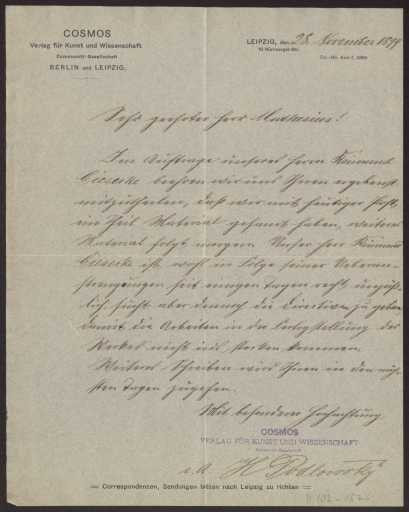 COSMOS
Verlag für Kunst und Wissenschaft
Commandit-Gesellschaft
BERLIN und LEIPZIG.
LEIPZIG, den 28. November 1899
Sehr geehrter Herr
Im Auftrage unseres Herrn Raimund
beehren wir uns Ihnen ergebenst
mitzutheilen, daß wir mit heutiger Post
ein Theil Material gesandt haben, weiteres
Material folgt morgen. Unser Herr Raimund
ist wohl in Folge seiner Ueberan-
strengungen seit einigen Tagen recht unpäß-
lich, sucht aber dennoch die Directiven zu geben
damit die Arbeiten in der Fertigstellung des
Werkes nicht ins Stocken kommen.
Weiteres Schreiben wird Ihnen in den näch-
sten Tagen zugehen.
Mit besonderer Hochachtung
COSMOS
VERLAG FÜR KUNST UND WISSENSCHAFT
i. A.
Correspondenzen, Sendungen bitten nach Leipzig zu richten